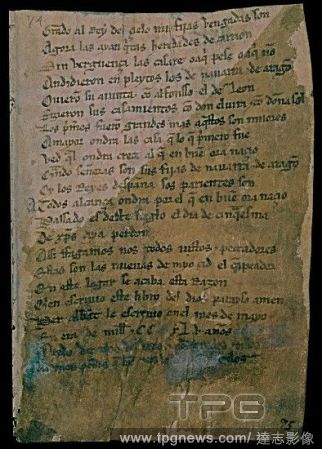 Grado al Rey del çielo mis fijas vengadas son
Agora las ayan qitas heredades de carrion
Sin verguença las casare o aqi pese o aqi nõ
Andidieron en pleytos los de nauarra & de aragõ
Ouierõ su aiunta cõ alfonsso el de Leon
Fizieron sus casamientos cõ don eluira & cõ doña sol
Los pmos fuerõ grandes mas aqstos son miiores
A mayor ondra las casa q lo q pmero fue
Ved ql ondra creçe al q en buẽ ora naçio
Quãdo señoras son sus fijas de nauarra & de aragõ
Oy los Reyes despaña sos parientes son
A Todos alcança ondra por el q en buẽ ora naçio
Passado es deste sieglo el dia de cinqsma
De xps aya perdon
Assi ffagamos nos todos iustos & peccadores
Estas son las nueuas de myo çid el cãpeador
En este logar se acaba esta Razon
Quien escriuio este libro del dios parayso amen
Per abbat le escriuio en el mes de mayo
En era de mill & CC xL v años
TPG
www.tpgnews.com / 達志影像